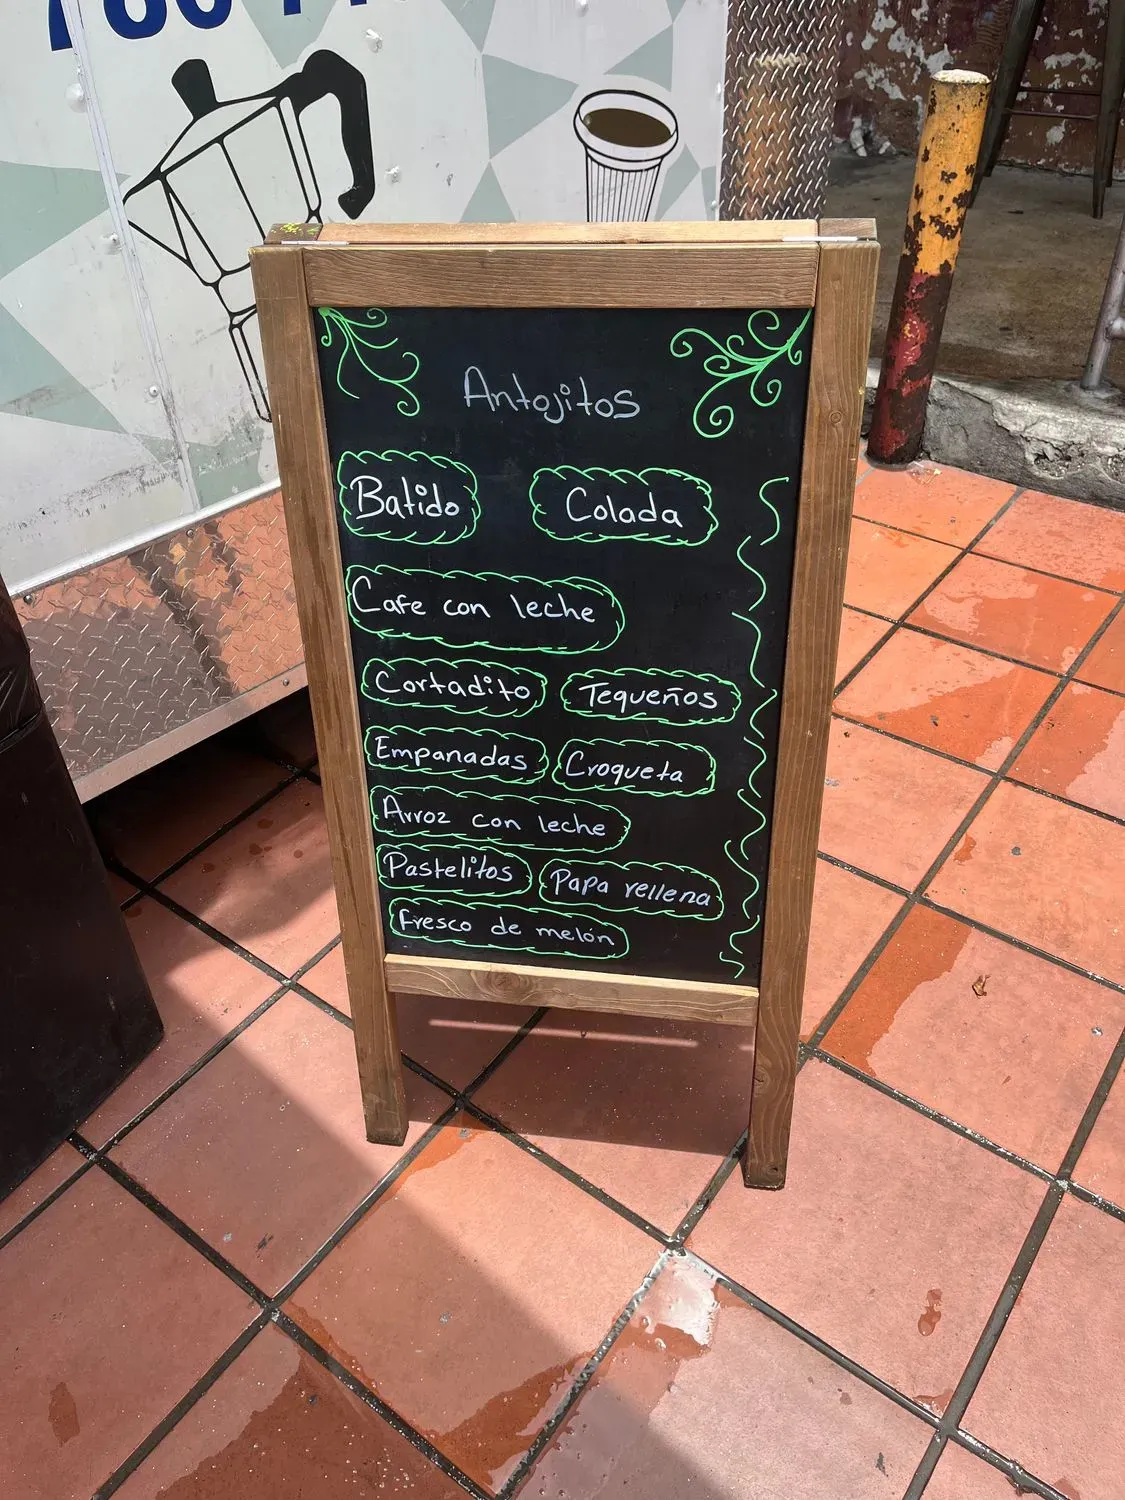 Antojitos
Batido Colada
Cafe con leche
Cortadito Tequeños
Empanadas Croqueta
Arroz con leche
Pastelitos Papa rellena
fresco de melón